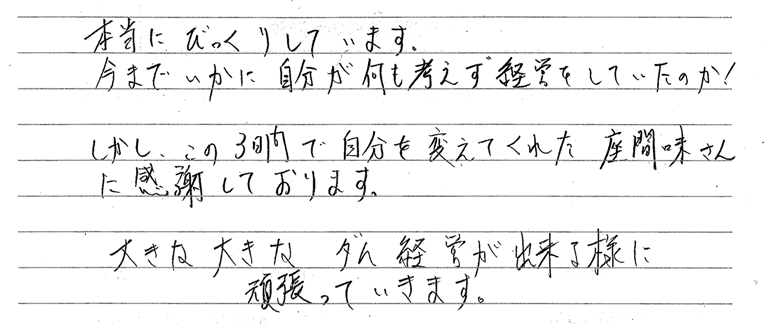 本当にびっくりしています。
今までいかに自分が何も考えず経営をしていたのか!
しかし、この3日間で自分を変えてくれた座間味さん
に感謝しております。
大きな大きなダム経営が出来る様に
頑張っていきます。